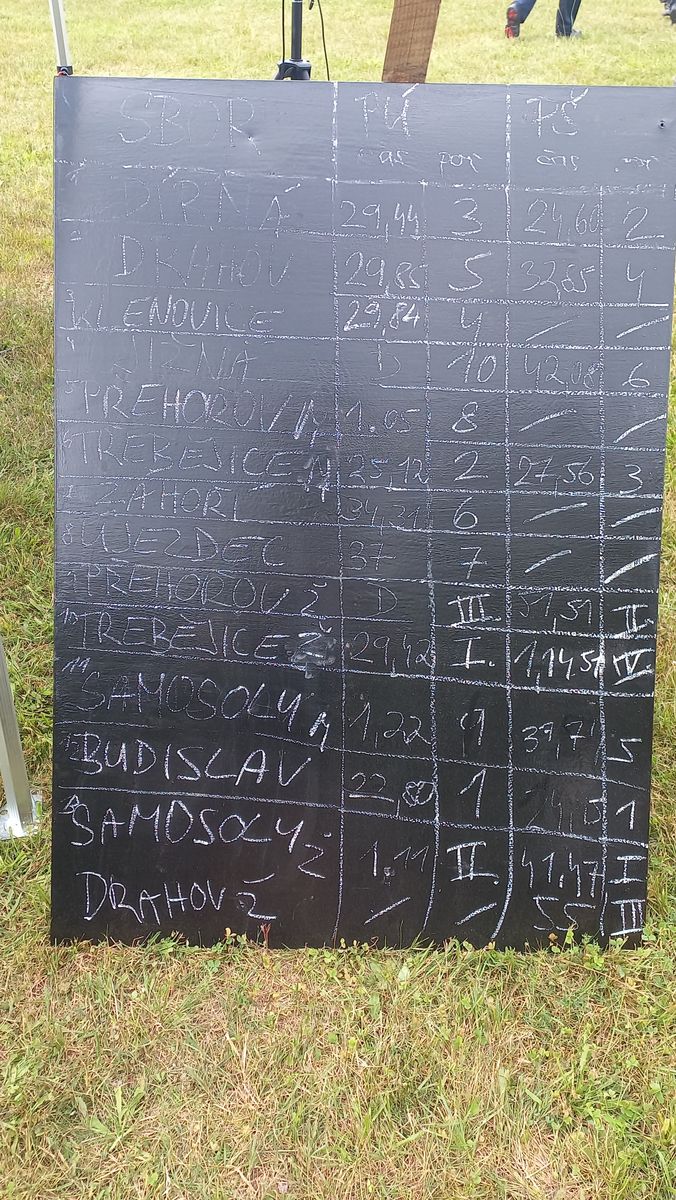 SBOR PÚ PŠ
čas poř čas poř
1 DÍRNÁ 29,44 3 24,60 2
2 DRAHOV 29,85 5 32,85 4
3 KLENOVICE 29,84 4 / /
ŽÍŠNÁ D 10 42,08 6
5 PŘEHOŘOV M 1.05 8 / /
6 TŘEBĚJICE M 25,12 2 27,56 3
7 ZÁHOŘÍ 34,21 6 / /
8 ÚJEZDEC 37 7 / /
9 PŘEHOŘOV Ž D III. 51,51 II.
10 TŘEBĚJICE Ž 29,42 I. 1,14,51 IV.
11 SAMOSOLY M 1,22 9 39,71 5
12 BUDISLAV 22, 1 1
SAMOSOLY Ž 1.11 II. 41.47 I
DRAHOV Ž / / 55 III